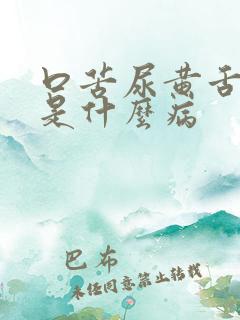 口苦尿黄舌
是什麼病
巴布
未经同意禁止转载